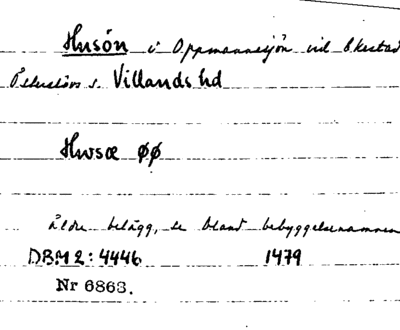 Husön i Oppmannasjön vid Ekestad
s. Villands hd
Husæ øø
Äldre belägg, se bland bebyggelsenamnen
DBM 2: 4446 1479
Nr 6863.